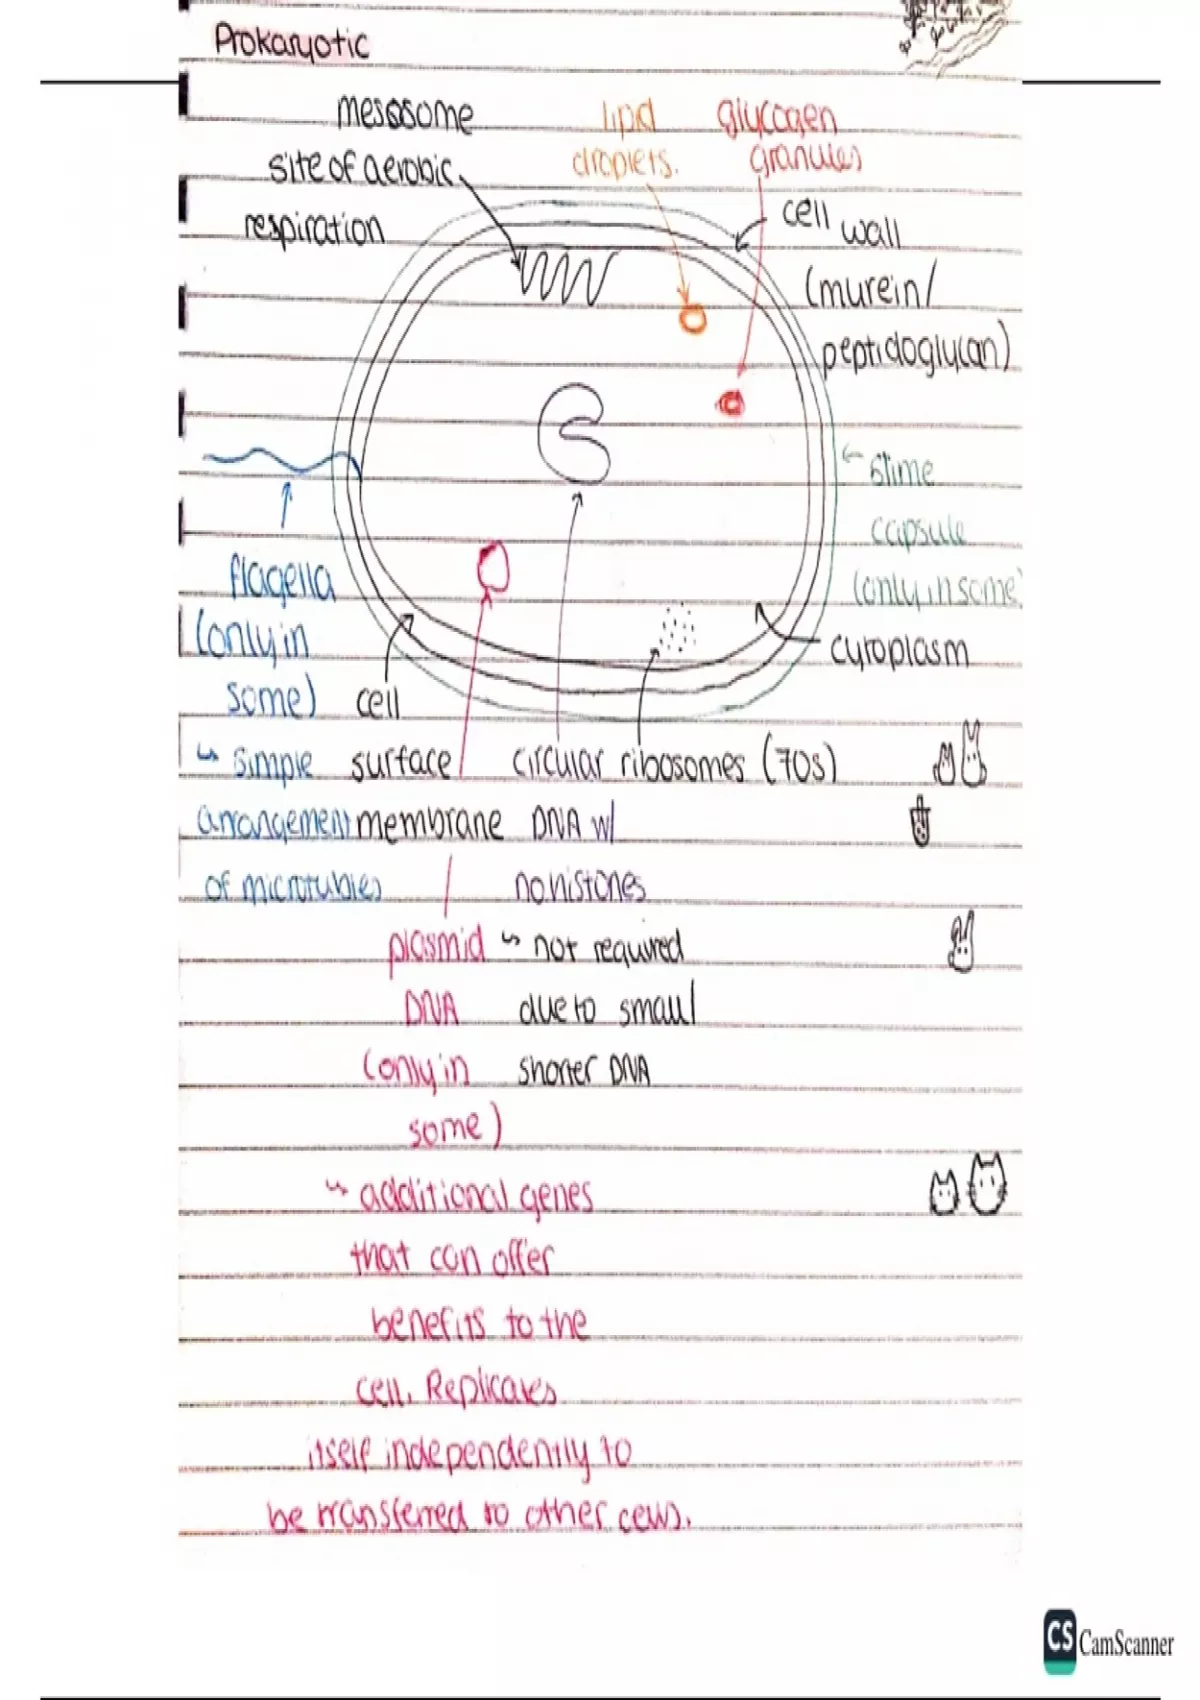 Prokaryotic
mesosome
site of aerobic
respiration
lipid
droplets.
glycogen
granules
cell wall
(murein/
peptidoglycan)
slime
capsule
(only in some)
cytoplasm
flagella
(only in
some)
↳ simple
arrangement
of microtubles
cell
surface
membrane
circular
DNA w/
no histones
↳ not required
due to small/
shorter DNA
ribosomes (70s)
plasmid
DNA
(only in
some)
↳ additional genes
that can offer
benefits to the
cell. Replicates
itself independently to
be transferred to other cells.
CS CamScanner